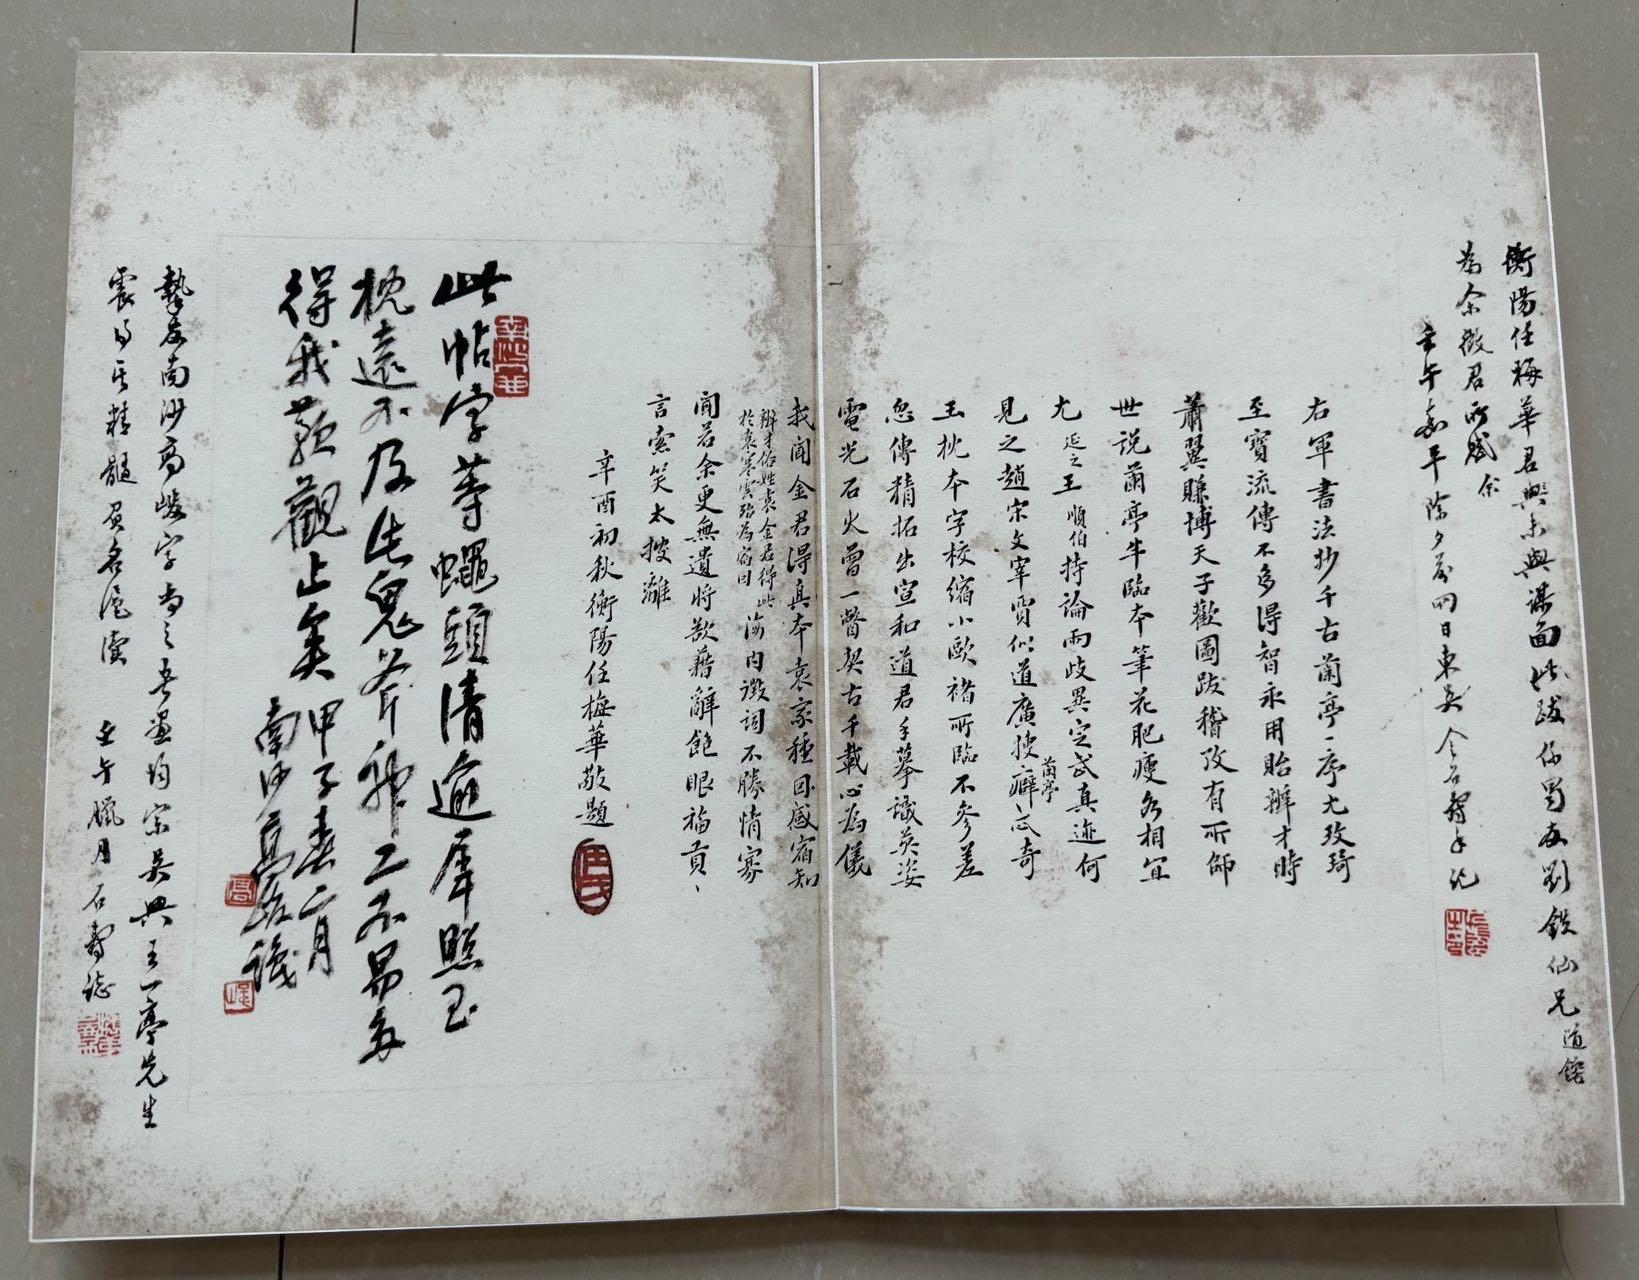 衡陽任梅華君與余未與謀面此跋係蜀友劉鉄仙兄道銓
為余徵君所賦余
壬午嘉平除夕前四日東吳金石壽手記
右軍書法妙千古蘭亭一序尤玫琦
至寶流傳不多得智永用貽辨才時
蕭翼賺博天子歡圖跋稽攷有所師
世說蘭亭牛臨本筆花肥瘦各相宜
尤延之王順伯持論兩歧異定武真迹何
見之趙宋文宰賈似道廣搜蘭亭癖忒奇
玉枕本字校縮小歐褚所臨不參差
忽傳精拓出宣和道君手摹識英姿
電光石火曾一瞥契古千載心為儀
我聞金君得真本袁家種因感宿知
辨才俗姓袁金君得此
於袁寒雲殆為宿因
海內徵詞不勝情寡
聞若余更無遺將欲藉辭飽眼福貢丶
言索笑太披離
辛酉初秋衡陽任梅華敬題
此帖字等蠅頭清逾犀照玉
枕遠不及此鬼斧神工不易多
得我歎觀止矣甲子春二月
南沙高峻識
摯友南沙高峻字尚之吾畫均宗吳興王一亭先生
震得其精髓頗負名滬瀆
壬午臘月石壽誌